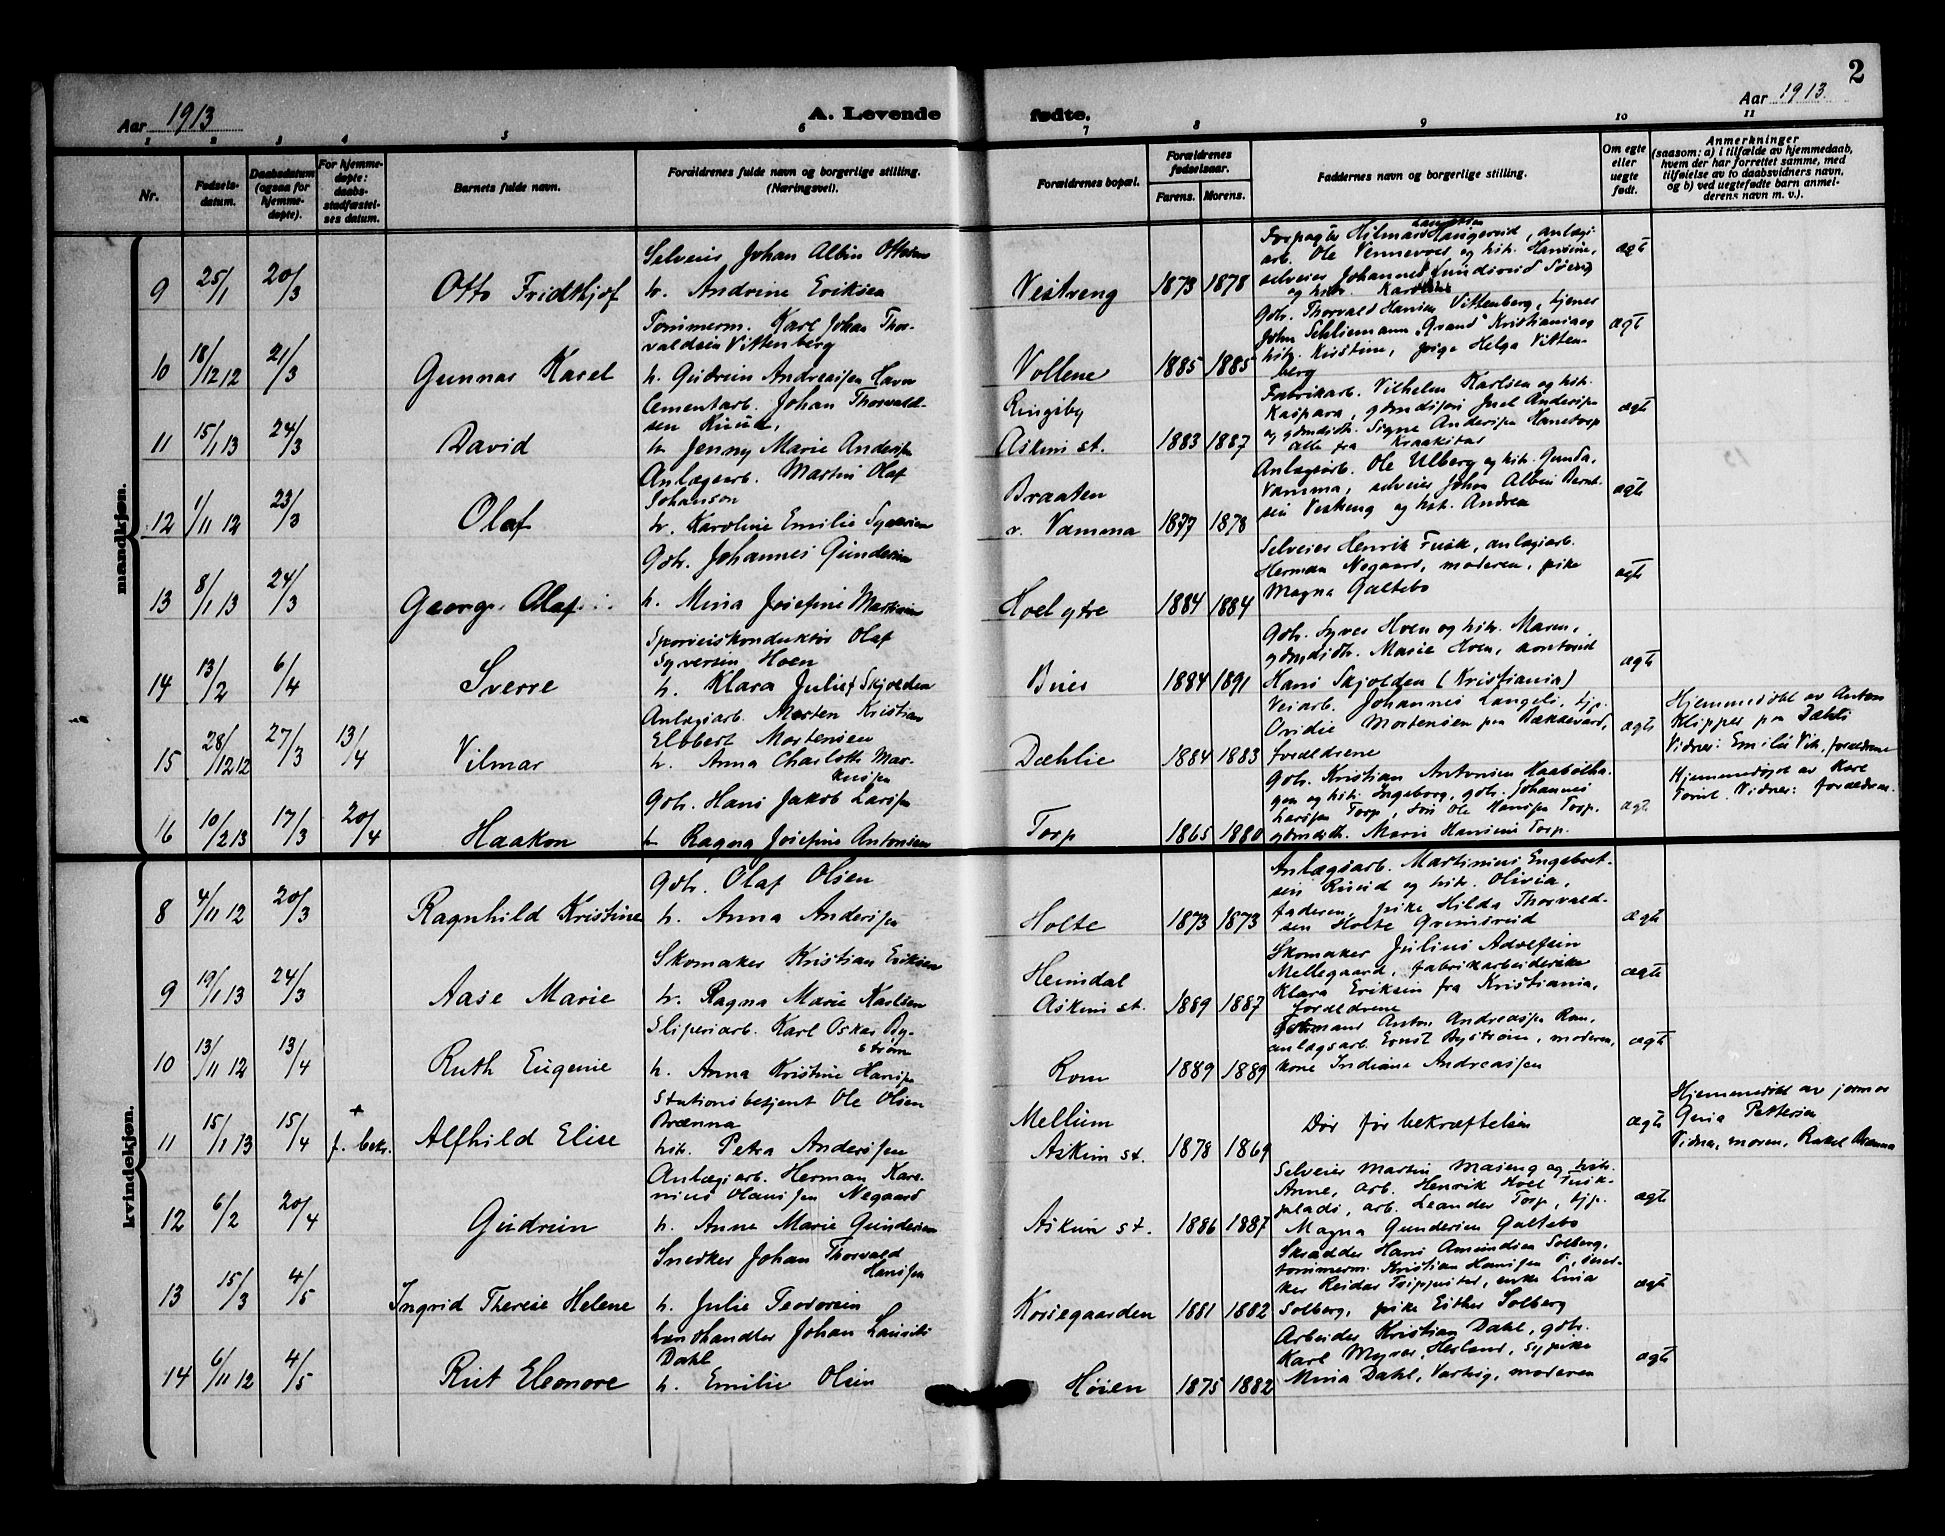 2
Aar 1913
A. Levende fødte.
Aar 1913.
1 2 3 4 5 6 7 8 9 10 11
Nr.
Fødsels-
datum.
Daabsdatum
(ogsaa for
hjemme-
døpte).
For hjemme-
døpte:
daabs-
stadfæstel-
ses datum.
Barnets fulde navn.
Forældrenes fulde navn og borgerlige stilling.
(Næringsvei).
Forældrenes bopæl.
Forældrenes
fødselsaar.
Farens. Morens.
Faddernes navn og borgerlige stilling.
Om egte
eller
uegte
født.
Anmerkninger
(saasom: a) i tilfælde av hjemmedaab,
hvem der har forrettet samme, med
tilføielse av to daabsvidners navn,
og b) ved uegtefødte barn anmel-
derens navn m. v.).
mandkjøn.
9 25/1 20/3 Otto Fridthjof
Selveier Johan Albin Ottesen
h. Andrine Eriksen
Vestreng 1873 1878
Forpagter Hilmar Haugerud, anlægs-
arb. Ole Vennevoe og hst. Hansine,
selveier Johannes
og hst.
ægt
10 18/12 12 21/3 Gunnar Karel
Tømmerm. Karl Johan Thor-
valdsen Vittenberg
h. Gudrun Andreassen Havn
Vollene 1885 1885
Gbr. Thorvald Hansen Vittenberg, tjener
John Schliemann "Grand" Kristiania og
hst. Kristine, pige Helga Vitten-
berg
ægt
11 15/1 13 24/3 David
Cementarb. Johan Thorvald-
sen Ruud,
h. Jenny Marie Andersen
Ringsby
Askim st. 1883 1887
Fabrikarb. Vilhelm Karlsen og hst.
Kaspara, gbrmdssøn Juel Andersen
og gbrmdsdtr. Signe Andersen Hanstorp
alle fra Kraakstad
ægt
12 1/11 12 23/3 Olaf
Anlægsarb. Martin Olaf
Johanson
h. Karoline Emilie Syversen
Braaten
v. Vamma 1877 1878
Anlægsarb. Ole Ulberg og hst. Gunda,
Vamma, selveier Johan Albin Bernt-
sen Vestreng og hst. Andrea
ægt
13 8/1 13 24/3 Georg Olaf
Gbr. Johannes Gundersen
h. Mina Josefine Martinsen
Hoel ytre 1884 1884
Selveier Henrik Fusk, anlægsarb.
Herman Negaard, moderen, pike
Magna Galtebo
ægt
14 13/2 6/4 Sverre
Sporveiskonduktør Olaf
Syversen Hoen
h. Klara Julie Skjolden
Buer 1884 1891
Gbr. Syver Hoen og hst. Maren,
gbrmdsdtr. Marie Hoen, kontorist
Hans Skjolden (Kristiania)
ægt
15 28/12 12 27/3 13/4 Vilmar
Anlægsarb. Morten Kristian
Elbbert Mortensen
h. Anna Charlotte Mar-
kussen
Dæhlie 1884 1883
Veiarb. Johannes Langeli, tjp.
Ovidie Mortensen paa Bækkevard,
forældrene
ægt
Hjemmedøbt av Anton
Klipper paa Dæhli
Vidner: Emilie Vik, forældrene
16 10/2 13 17/3 20/4 Haakon
Gbr. Hans Jakob Larssen
h. Ragna Josefine Antonsen
Torp 1865 1880
Gbr. Kristian Antonsen Haabølha-
gen og hst. Ingeborg, gbr. Johannes
Larssen Torp, søn Ole Hanssen Torp,
gbrmdsdtr. Marie Hansine Torp.
ægt
Hjemmedøpt av Kare
Tomt. Vidner: forældrene
kvindekjøn.
8 4/11 12 20/3 Ragnhild Kristine
Gbr. Olaf Olsen
h. Anna Anderssen
Holte 1873 1873
Anlægsarb. Martinius Engebret-
sen Ruud og hst. Olivia,
faderen, pike Hilda Thorvald-
sen Holte Grimsrud
ægt
9 19/1 13 24/3 Aase Marie
Skomaker Kristian Eriksen
h. Ragna Marie Karlsen
Heimdal
Askim st. 1889 1887
Skomaker Julius Adolfsen
Mellegaard, fabrikarbeiderske
Klara Eriksen fra Kristiania,
forældrene
ægt
10 13/11 12 13/4 Ruth Eugenie
Sliperiarb. Karl Oskar By-
strøm
h. Anna Kristine Hanssen
Rom 1889 1889
Formand Anton Andreassen Rom,
anlægsarb. Ernst Bystrøm, moderen,
kone Indiana Andreassen
ægt
11 15/1 13 15/4 + f. bekr. Alfhild Elise
Stationsbetjent Ole Olsen
Brænna
hst. Petra Anderssen
Mellum
Askim st. 1878 1869
Dør før bekræftelsen
ægt
Hjemmedøbt av jormor
Gina Pettersen
Vidner, moren, Rakel Brænna
12 6/2 20/4 Gudrun
Anlægsarb. Herman Kare-
nius Olaussen Negaard
h. Anne Marie Gundersen
Askim st. 1886 1887
Selveier Martin Maseng og hst.
Anne, arb. Henrik Hoel Fusk-
plads, arb. Leander Torp, tjp.
Magna Gundersen Galtebo
ægt
13 15/3 4/5 Ingrid Therese Helene
Snedker Johan Thorvald
Hanssen
h. Julie Teodorsen
Korsegaarden 1881 1882
Skrædder Hans Amundsen Solberg,
tømmerm. Kristian Hanssen , sned-
ker Reidar Trippestad, enke Lina
Solberg, pike Esther Solberg
ægt
14 6/11 12 4/5 Rut Eleonore
Landhandler Johan Lauritz
Dahl
h. Emilie Olsen
Høien 1875 1882
Arbeider Kristian Dahl, gbr.
Karl Myrer, Herland, sypike
Mina Dahl, Vartvig, moderen
ægt